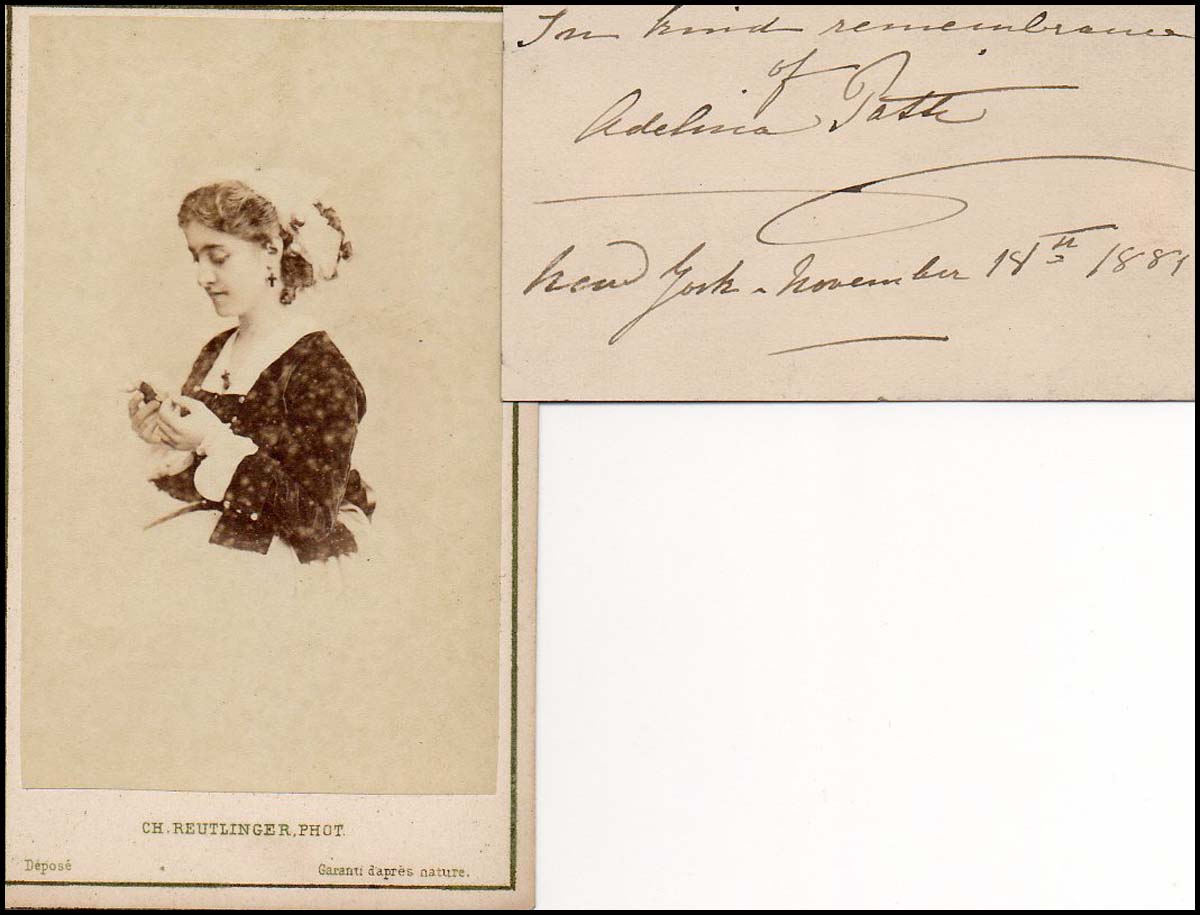 In kind remembrance
of
Adelina Patti
New York - November 18th 1881
CH. REUTLINGER, PHOT.
Déposé
Garanti d'après nature.